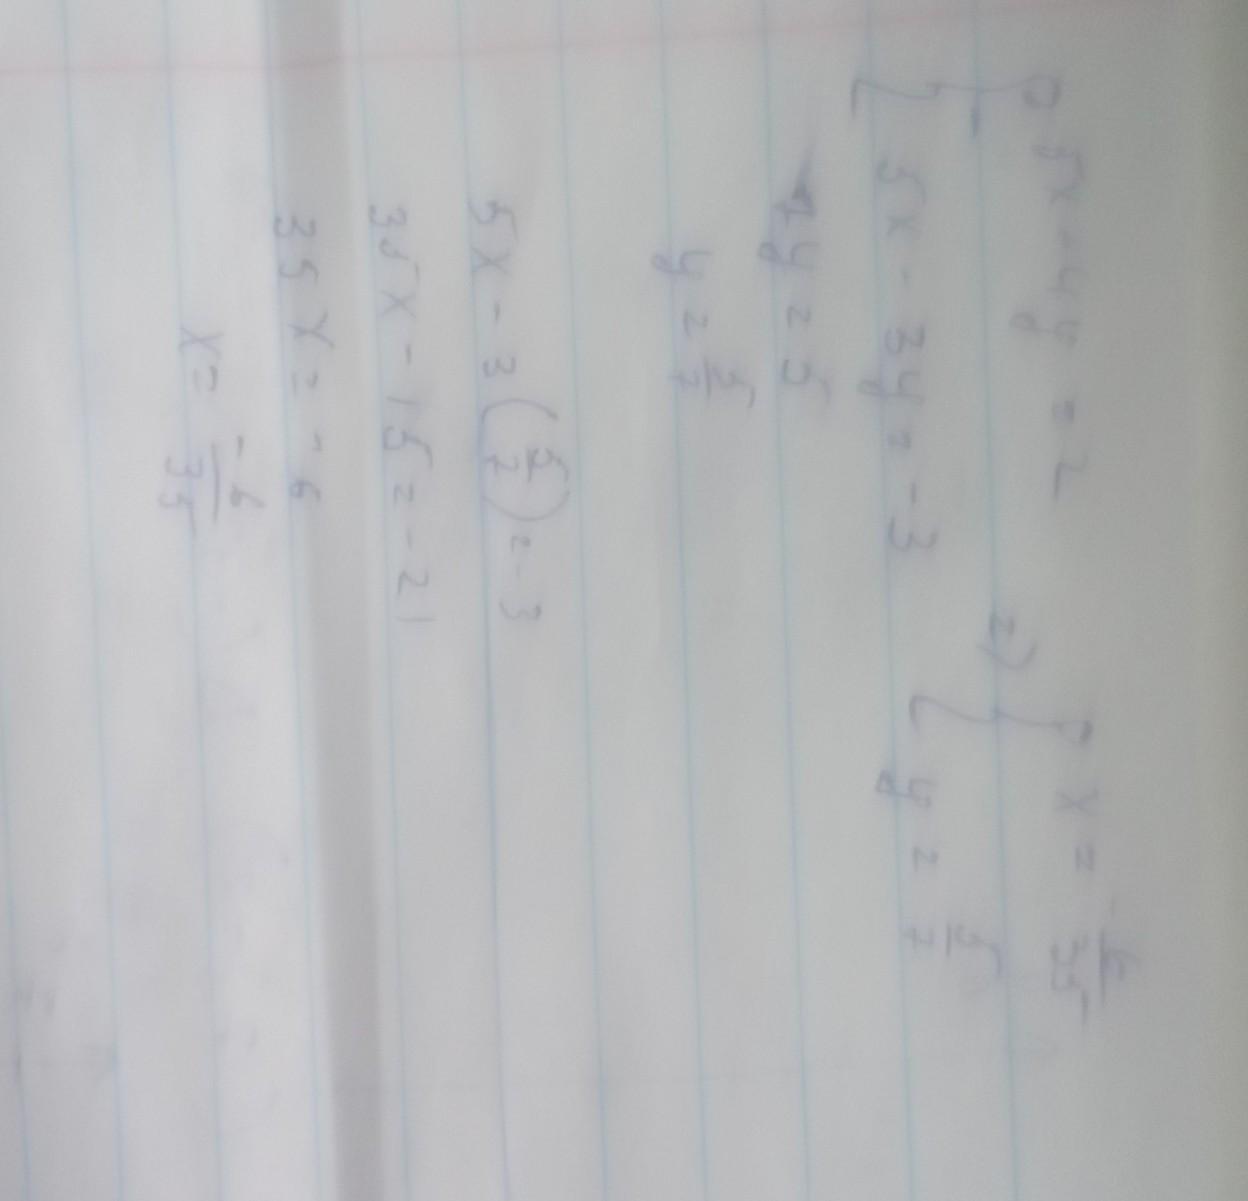 5x - 4y = 2
5x - 3y = -3
7y = 5
y = 5/7
5x - 3(5/7) = -3
35x - 15 = -21
35x = -6
x = -6/35
2) x = -6/35
y = 5/7